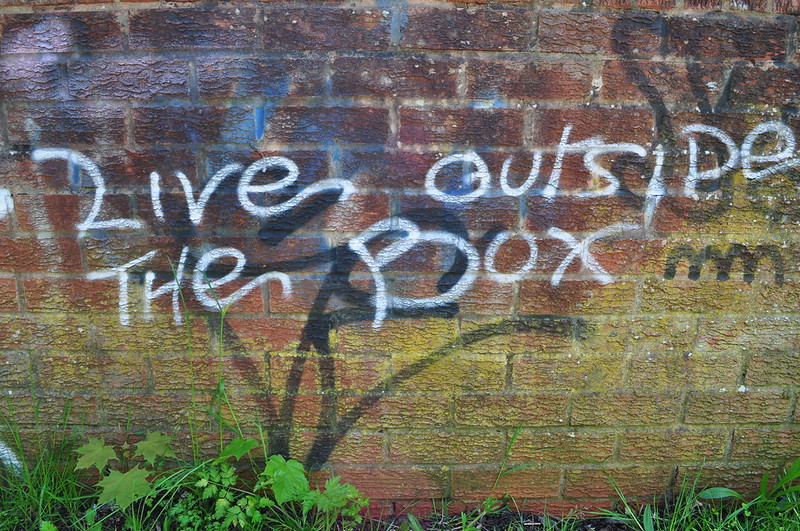 Live outside
THe Box